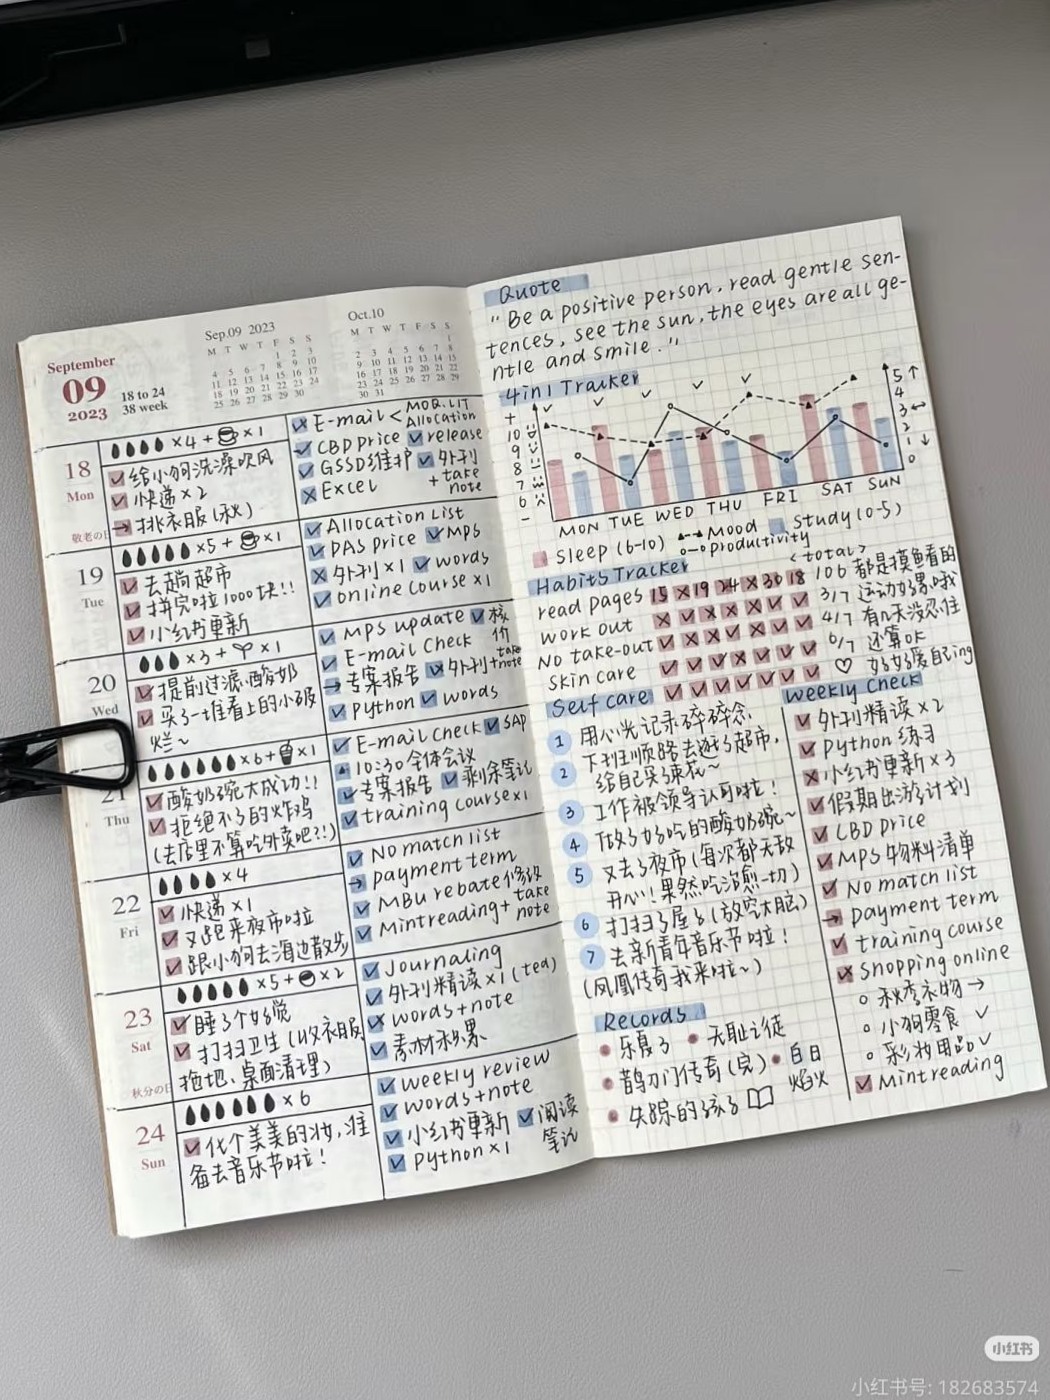 September
09
2023
18 to 24
38 week
Sep.09 2023
M T W T F S S
1 2 3
4 5 6 7 8 9 10
11 12 13 14 15 16 17
18 19 20 21 22 23 24
25 26 27 28 29 30
Oct.10
M T W T F S S
1
2 3 4 5 6 7 8
9 10 11 12 13 14 15
16 17 18 19 20 21 22
23 24 25 26 27 28 29
30 31
18
Mon
敬老の日
×4 + ×1
给小狗洗澡吹风
快递×2
挑衣服(秋)
E-mail < MOQ.LIT
Allocation
CBD price release
GSSD维护 外刊
+take
note
Excel
19
Tue
×5 + ×1
去趟超市
拼完啦1000块!!
小红书更新
Allocation List
DAS price MPS
外刊×1 words
online course ×1
20
Wed
×3 + ×1
提前过滤酸奶
买了一堆看上的小破
烂~
MPS update 核
价
E-mail check
专案报告 外刊+take
note
Python words
21
Thu
×6 + ×1
酸奶碗大成功!!
拒绝不了的炸鸡
(去店里不算吃外卖吧?!)
E-mail check SAP
10:30 全体会议
专案报告 剩余笔记
training course×1
22
Fri
×4
快递×1
又跑来夜市啦
跟小狗去海边散步
No match list
payment term
MBU rebate修改
Mintreading+ take
note
23
Sat
秋分の日
×5 + ×2
睡了个好觉
打扫卫生(收衣服
拖地、桌面清理)
Journaling
外刊精读×1(tea)
words+note
素材积累
24
Sun
×6
化个美美的妆,准
备去音乐节啦!
weekly review
words+note
小红书更新 阅读
笔记
Python×1
Quote
"Be a positive person, read gentle sen-
tences, see the sun, the eyes are all ge-
ntle and smile."
4in1 Tracker
+
10
9
8
7
6
-
5 ↑
4
3 ↔
2
1 ↓
0
MON TUE WED THU FRI SAT SUN
Sleep (6-10) Mood Study (0-5)
productivity
Habits Tracker <total>
read pages 15 × 19 24 × 30 18 106 都是摸鱼看的
work out 3/7 运动好累哦
No take-out 4/7 有几天没忍住
skin care 6/7 还算OK
Self care ♡ 好好爱自己ing
1 用心光记录碎碎念
2 下班顺路去逛了超市,
给自己买了束花~
3 工作被领导认可啦!
4 做了好吃的酸奶碗~
5 又去了夜市(每次都无敌
开心!果然吃治愈一切)
6 打扫了屋子(放空大脑)
7 去新青年音乐节啦!
(凤凰传奇我来啦~)
Weekly Check
外刊精读×2
Python练习
小红书更新×3
假期出游计划
CBD price
MPS物料清单
No match list
payment term
training course
Shopping online
秋季衣物→
小狗零食 ✓
彩妆用品 ✓
Mintreading
Records
乐夏3 无耻之徒
鹊刀门传奇(完) 白日
焰火
失踪的孩子
小红书
小红书号: 182683574